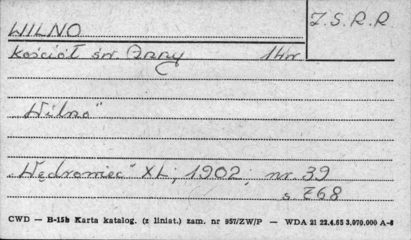 WILNO
Z.S.R.R
kościół św. Anny 14w
"Wilno"
"Wędrowiec" XL, 1902, nr. 39
s. 768
CWD — B-15b Karta katalog. (z liniat.) zam. nr 957/ZW/P — WDA 21 22.4.65 3.070.000 A-6